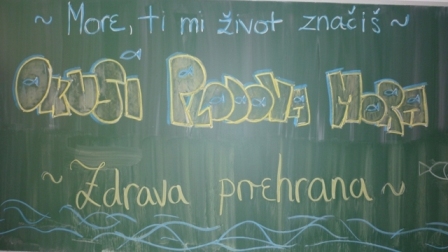 ~ More, ti mi život značiš ~
OKUSI PLODOVA MORA
~ Zdrava prehrana ~